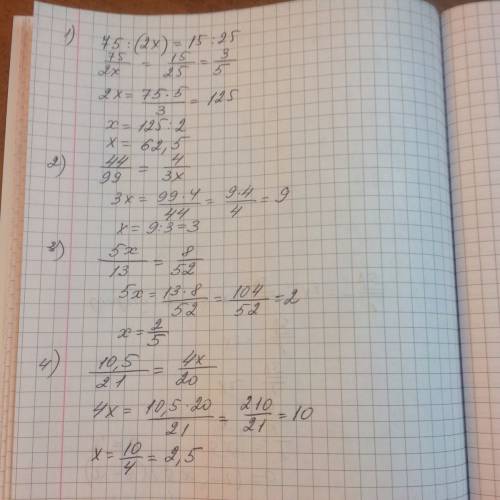 1) 75 : (2x) = 15 : 25
75/2x = 15/25 = 3/5
2x = 75·5/3 = 125
x = 125:2
x = 62,5
2) 44/99 = 4/3x
3x = 99·4/44 = 9·4/4 = 9
x = 9:3=3
3) 5x/13 = 8/52
5x = 13·8/52 = 104/52 = 2
x = 2/5
4) 10,5/21 = 4x/20
4x = 10,5·20/21 = 210/21 = 10
x = 10/4 = 2,5